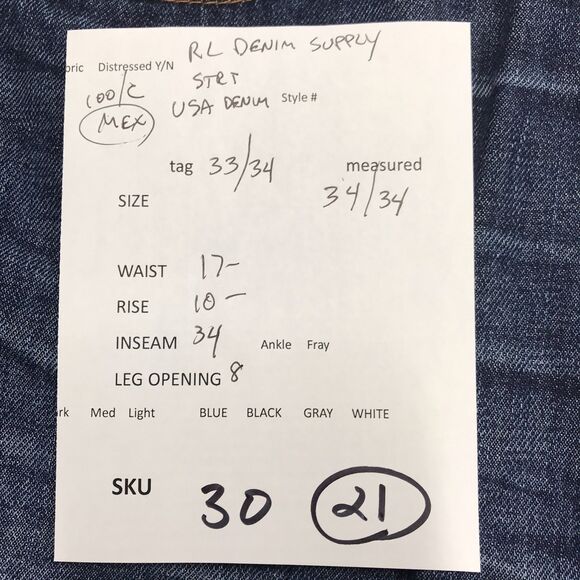 RL DENIM SUPPLY
bric Distressed Y/N
STRT
100/C
USA DENIM Style #
MEX
tag 33/34 measured
34/34
SIZE
WAIST 17-
RISE 10-
INSEAM 34 Ankle Fray
LEG OPENING 8
rk Med Light BLUE BLACK GRAY WHITE
SKU 30 21